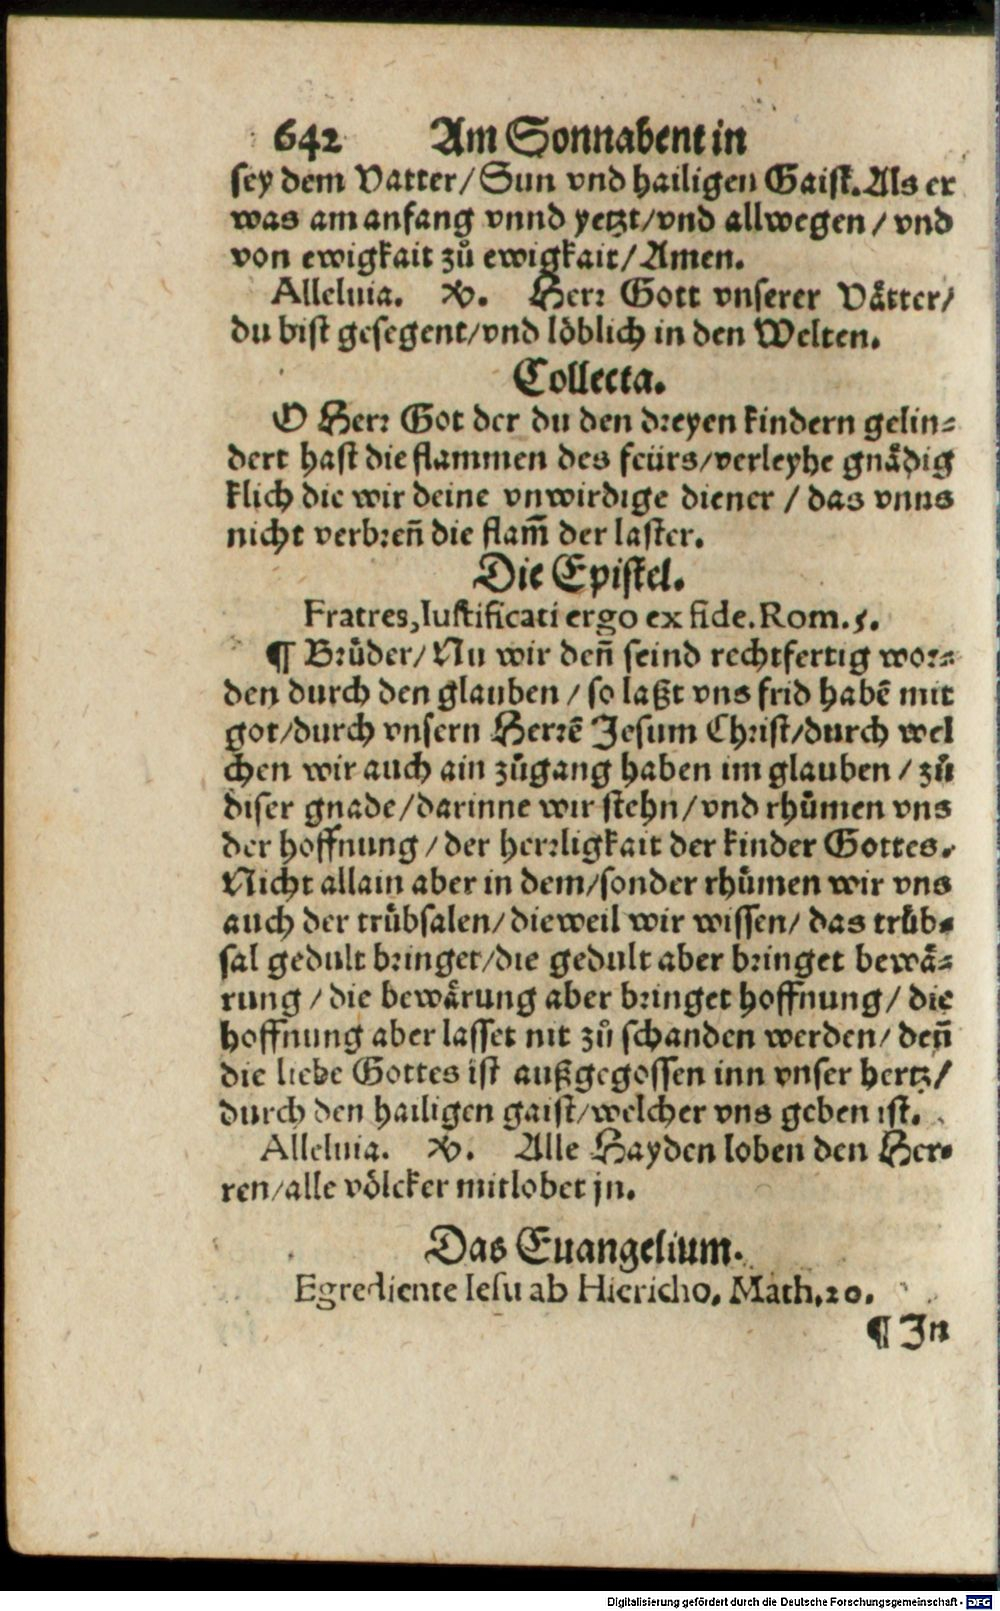 642 Am Sonnabent in
sey dem Vatter/Sun vnd hailigen Gaist. Als er
was am anfang vnnd yetzt/vnd allwegen/vnd
von ewigkait zů ewigkait/Amen.
Alleluia. ℣. Herꝛ Gott vnserer Vätter/
du bist gesegent/vnd löblich in den Welten.
Collecta.
O Herꝛ Got der du den dꝛeyen kindern gelin⸗
dert hast die flammen des feürs/verleyhe gnädig
klich die wir deine vnwirdige diener/das vnns
nicht verbꝛen̄ die flam̄ der laster.
Die Epistel.
Fratres, Iustificati ergo ex fide. Rom. 5.
¶ Bꝛüder/Nu wir den̄ seind rechtfertig woꝛ⸗
den durch den glauben/so laßt vns frid habē mit
got/durch vnsern Herꝛē Jesum Chꝛist/durch wel
chen wir auch ain zůgang haben im glauben/zů
diser gnade/darinne wir stehn/vnd rhümen vns
der hoffnung/der herꝛligkait der kinder Gottes.
Nicht allain aber in dem/sonder rhümen wir vns
auch der trübsalen/dieweil wir wissen/das trüb⸗
sal gedult bꝛinget/die gedult aber bꝛinget bewä⸗
rung/die bewärung aber bꝛinget hoffnung/die
hoffnung aber lasset nit zů schanden werden/den̄
die liebe Gottes ist außgegossen inn vnser hertz/
durch den hailigen gaist/welcher vns geben ist.
Alleluia. ℣. Alle Hayden loben den Her⸗
ren/alle völcker mitlobet jn.
Das Euangelium.
Egrediente Iesu ab Hiericho. Math. 20.
¶ In
Digitalisierung gefördert durch die Deutsche Forschungsgemeinschaft - DFG